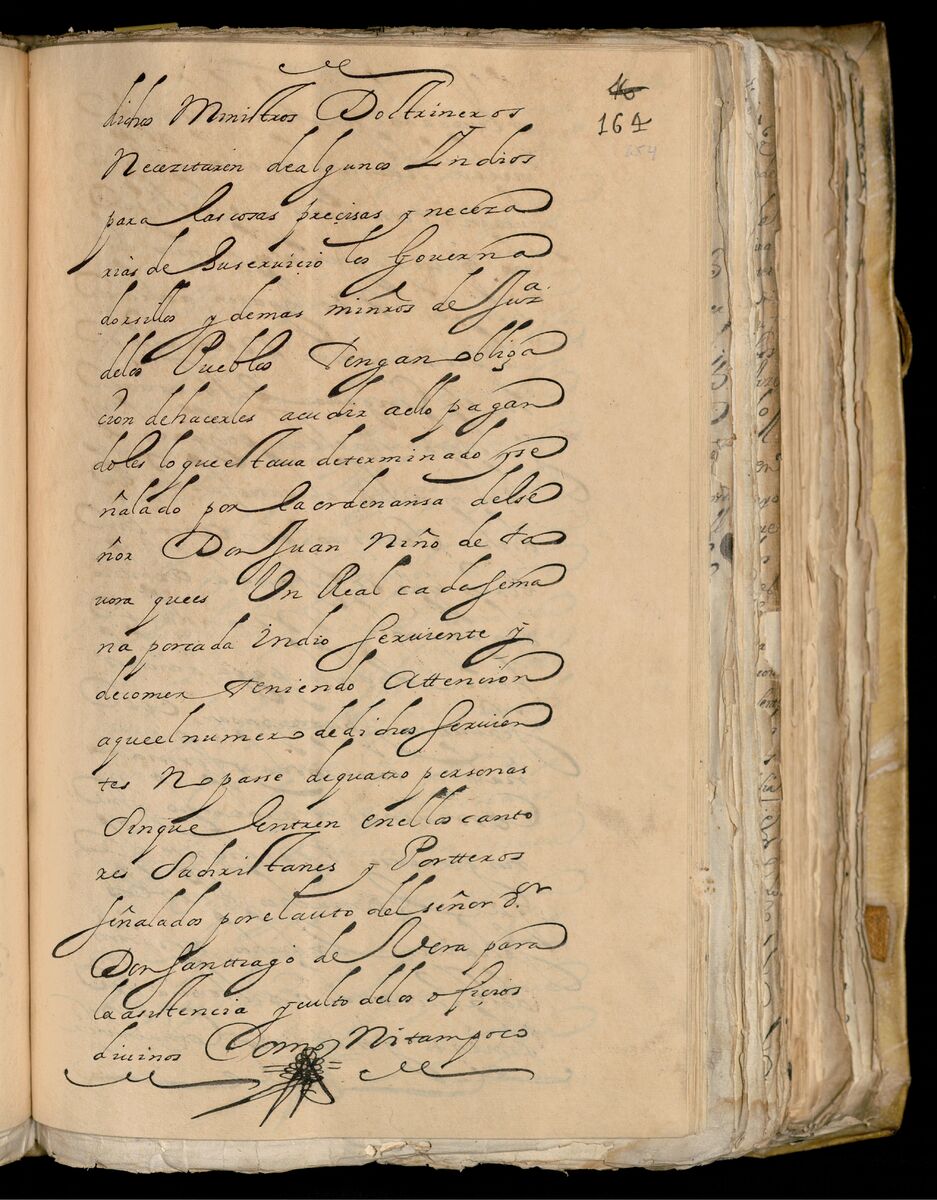 46
164
254
dichos Ministros Doltrineros
Necezitaren dealgunos Indios
para lascosas preçisas y neceza
rias de Suservicio los Governa
dorsillos y demas minros de Juza
delos Pueblos Tengan obliga
cion dehacerles acudir aello pagan
doles loqueestaua determinado yse
ñalado por laordenansa delse
ñor Don Juan Niño de ta
uora quees Un Real cada sema
na porcada Indio serviente y
decomer Teniendo Attencion
aqueelnumero dedichos servien
tes No passe dequatro personas
Sinque entren enellos canto
res Sachristanes y Portteros
señalados porelauto del señor Dr
Don Santtiago de Vera para
laasistencia yculto delos ofiçios
divinos Como Nitampoco